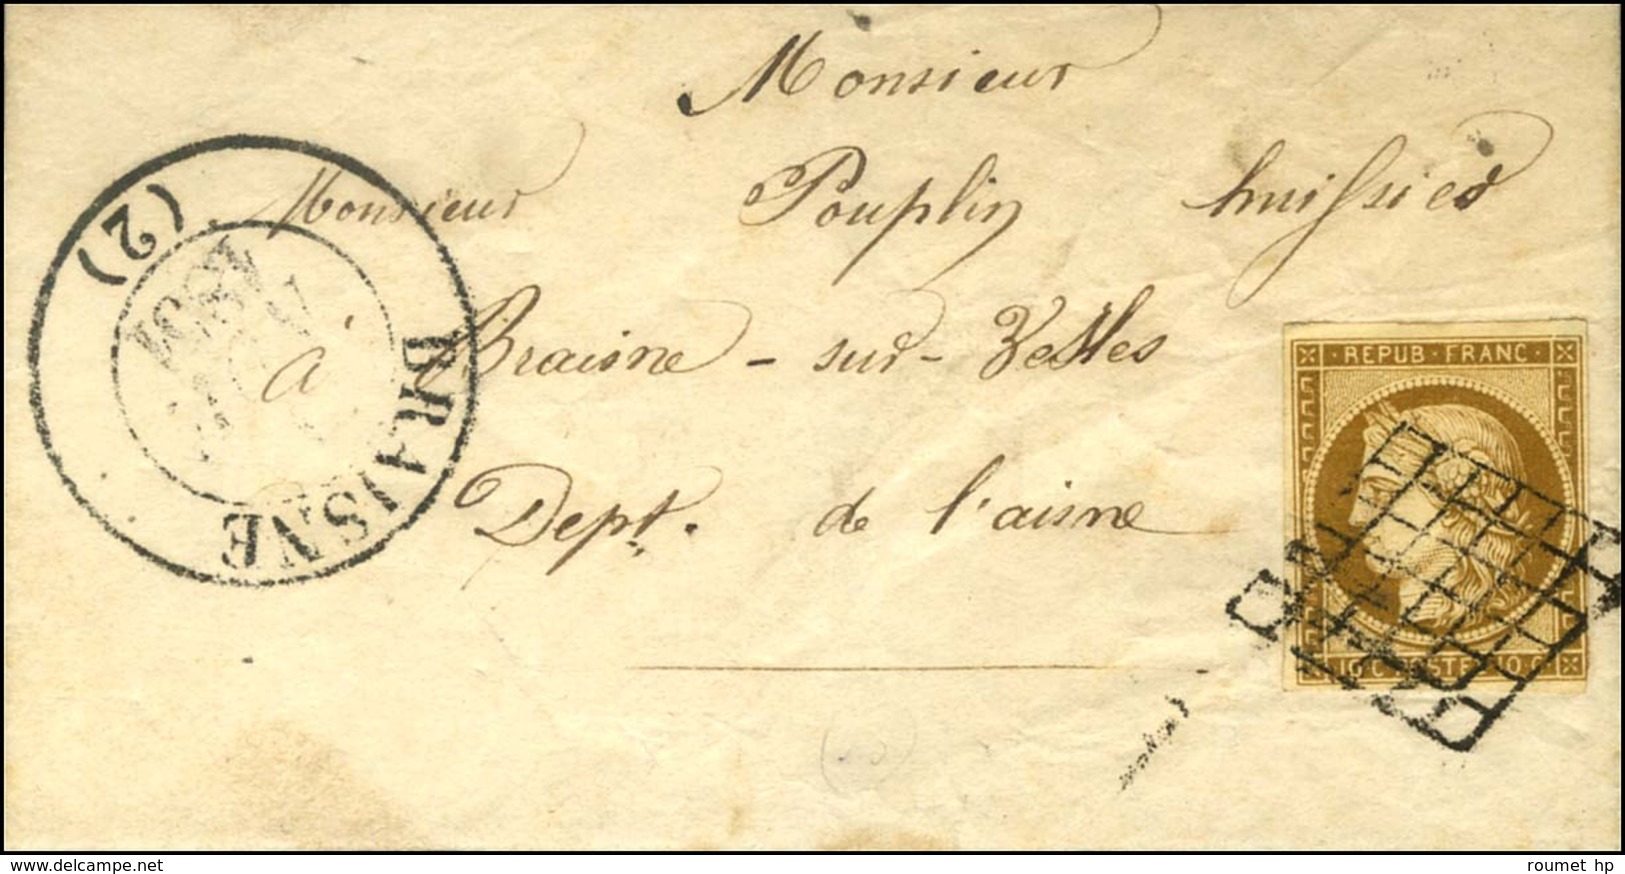 Monsieur
Monsieur Pouplin huissier
à Braisne - sur - Vesles
Dept. de l'aisne
BRAISNE
(2)
1851
REPUB · FRANC ·
10 C POSTE 10 C
www.delcampe.net
roumet hp